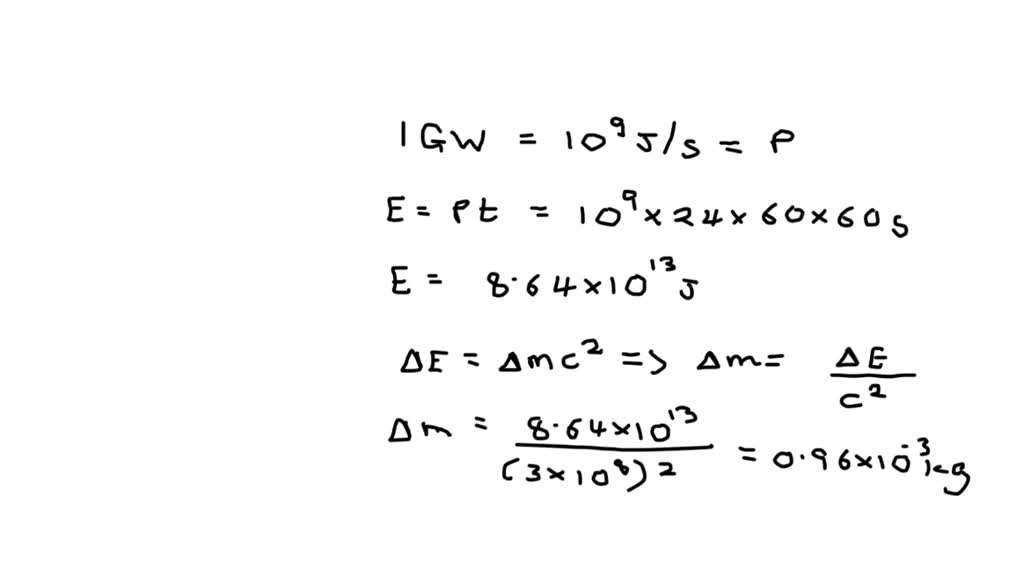 1 GW = 10⁹ J/s = P
E = Pt = 10⁹ × 24 × 60 × 60 s
E = 8.64 × 10¹³ J
ΔE = Δmc² => Δm = ΔE/c²
Δm = 8.64 × 10¹³/(3 × 10⁸)² = 0.96 × 10⁻³ kg